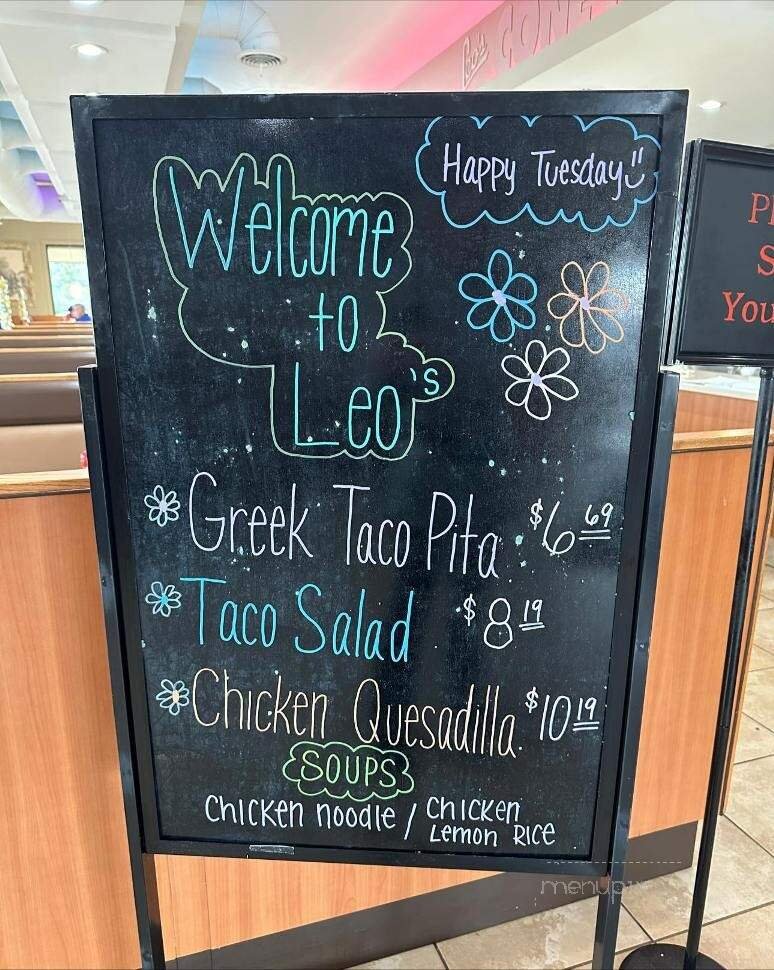 Leo's CONEY
Happy Tuesday
Welcome
to
Leo's
Greek Taco Pita $6.69
Taco Salad $8.19
Chicken Quesadilla $10.19
SOUPS
Chicken Noodle / Chicken
Lemon Rice
You
menupix